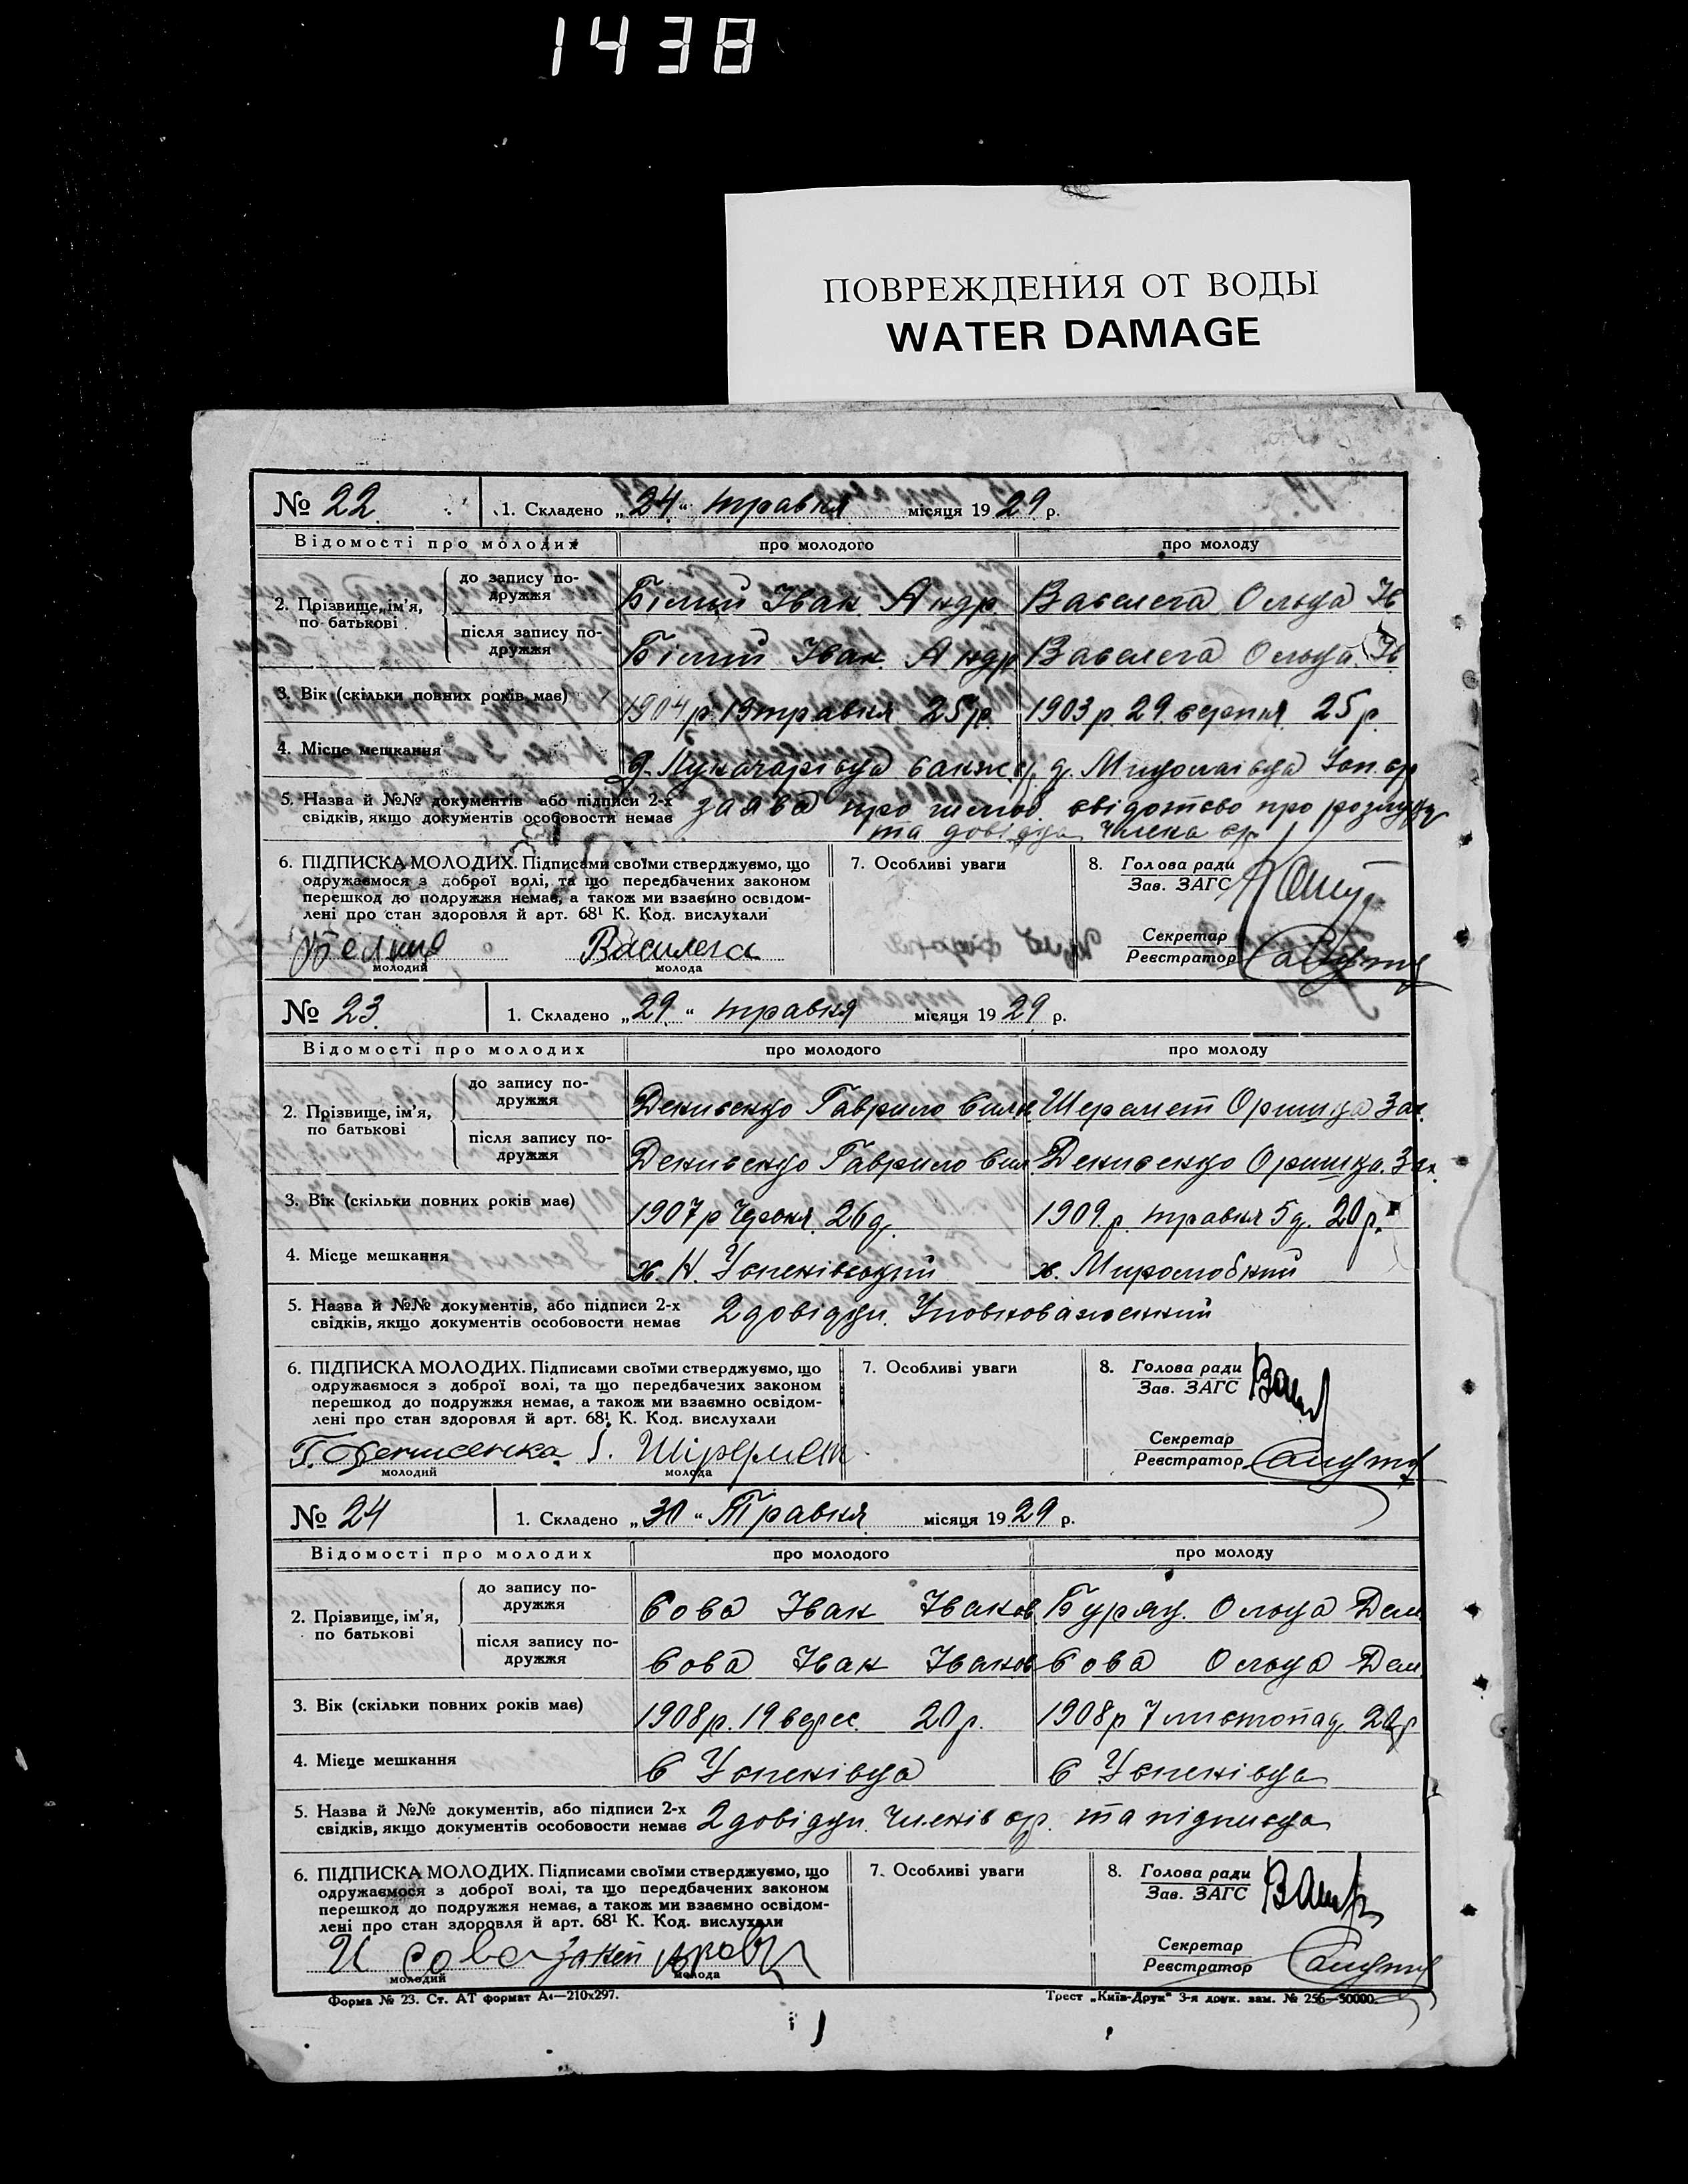 1438
ПОВРЕЖДЕНИЯ ОТ ВОДЫ
WATER DAMAGE
№ 22. 1. Складено „24“ травня місяця 1929 р.
Відомості про молодих про молодого про молоду
2. Прізвище, ім'я, по батькові
до запису подружжя Білий Іван Андр. Василега Ольга Ів
після запису подружжя Білий Іван Андр Василега Ольга Ів
3. Вік (скільки повних років має) 1904 р. 19 травня 25 р. 1903 р. 29 серпня 25 р.
4. Місце мешкання
5. Назва й №№ документів або підписи 2-х свідків, якщо документів особовости немає заява про шлюб. свідотство про розлуку
та довідка члена ср
6. ПІДПИСКА МОЛОДИХ. Підписами своїми стверджуємо, що
одружаємося з доброї волі, та що передбачених законом
перешкод до подружжя немає, а також ми взаємно освідом-
лені про стан здоровля й арт. 68¹ К. Код. вислухали
Василега
молодий молода
7. Особливі уваги
8. Голова ради
Зав. ЗАГС
Секретар
Реєстратор
№ 23. 1. Складено „29“ травня місяця 1929 р.
Відомості про молодих про молодого про молоду
2. Прізвище, ім'я, по батькові
до запису подружжя Денисенко Гаврило Шеремет Оришка Зах.
після запису подружжя Денисенко Гаврило Денисенко Оришка Зах.
3. Вік (скільки повних років має) 1907 р 26 д. 1909 р. травня 5 д. 20 р.
4. Місце мешкання х. Н. Успенівський х.
5. Назва й №№ документів, або підписи 2-х свідків, якщо документів особовости немає 2 довідки. Уповноваженний
6. ПІДПИСКА МОЛОДИХ. Підписами своїми стверджуємо, що
одружаємося з доброї волі, та що передбачених законом
перешкод до подружжя немає, а також ми взаємно освідом-
лені про стан здоровля й арт. 68¹ К. Код. вислухали
Г. Денисенка
молодий молода
7. Особливі уваги
8. Голова ради
Зав. ЗАГС
Секретар
Реєстратор
№ 24 1. Складено „31“ Травня місяця 1929 р.
Відомості про молодих про молодого про молоду
2. Прізвище, ім'я, по батькові
до запису подружжя Сова Іван Іванов. Буряк Ольга Дем.
після запису подружжя Сова Іван Іванов Сова Ольга Дем
3. Вік (скільки повних років має) 1908 р. 19 верес. 20 р. 1908 р 7 листопад. 20 р
4. Місце мешкання с Успенівка с Успенівка
5. Назва й №№ документів, або підписи 2-х свідків, якщо документів особовости немає 2 довідки. Членів ср. та підписка
6. ПІДПИСКА МОЛОДИХ. Підписами своїми стверджуємо, що
одружаємося з доброї волі, та що передбачених законом
перешкод до подружжя немає, а також ми взаємно освідом-
лені про стан здоровля й арт. 68¹ К. Код. вислухали
И Сова
молодий молода
7. Особливі уваги
8. Голова ради
Зав. ЗАГС
Секретар
Реєстратор
Форма № 23. Ст. АТ формат А4—210х297. Трест „Київ-Друк" 3-я друк. зам. № 256—50000.